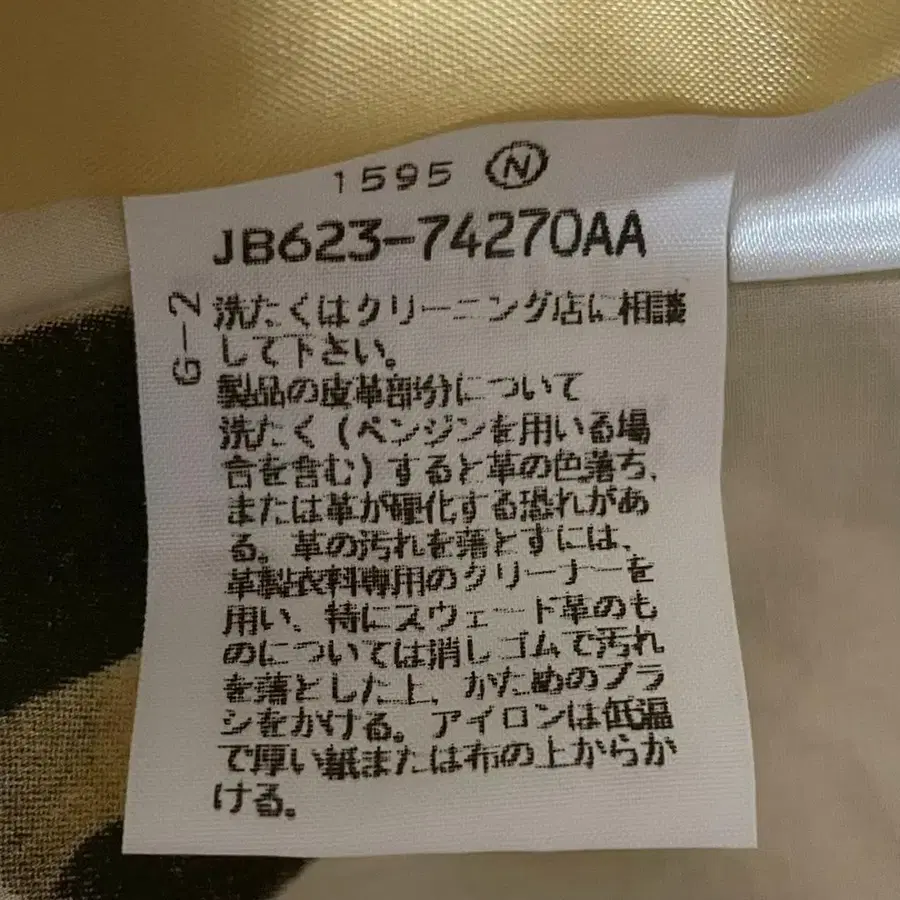 1595 Ⓝ
JB623-74270AA
G-2
洗たくはクリーニング店に相談
して下さい。
製品の皮革部分について
洗たく(ベンジンを用いる場
合を含む)すると革の色落ち、
または革が硬化する恐れがあ
る。革の汚れを落とすには、
革製衣料専用のクリーナーを
用い、特にスウェード革のも
のについては消しゴムで汚れ
を落とした上、かためのブラ
シをかける。アイロンは低温
で厚い紙または布の上からか
ける。